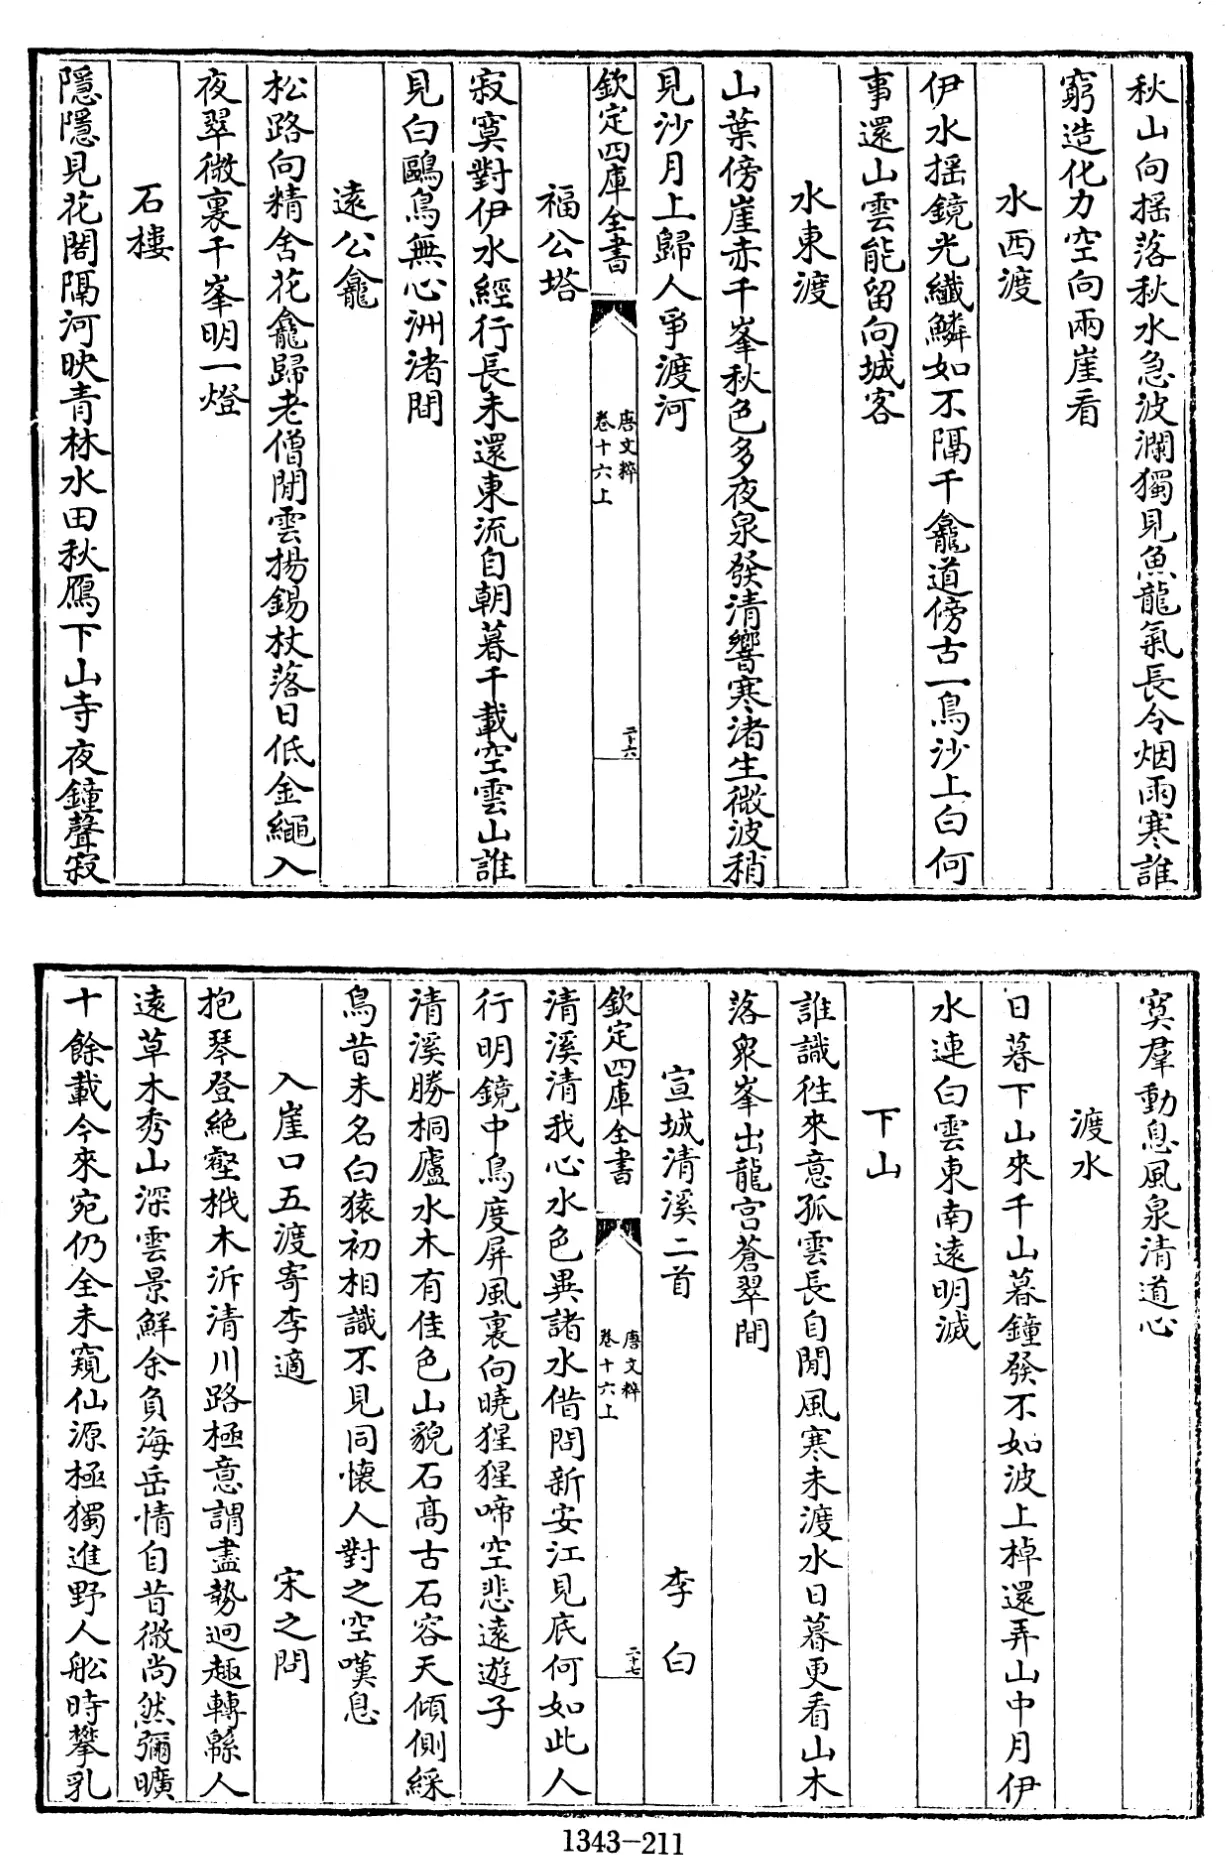 秋山向搖落秋水急波瀾獨見魚龍氣長令烟雨寒誰
窮造化力空向兩崖看
水西渡
伊水揺鏡光纖鱗如不隔千龕道傍古一鳥沙上白何
事還山雲能留向城客
水東渡
山葉傍崖赤千峯秋色多夜泉發清響寒渚生微波稍
見沙月上歸人爭渡河
欽定四庫全書
唐文粹
卷十六上
二十六
福公塔
寂寞對伊水經行長未還東流自朝暮千載空雲山誰
見白鷗鳥無心洲渚間
遠公龕
松路向精舍花龕歸老僧閒雲揚錫杖落日低金繩入
夜翠微裏千峯明一燈
石樓
隱隱見花閣隔河映青林水田秋鴈下山寺夜鐘聲寂
寞羣動息風泉清道心
渡水
日暮下山來千山暮鐘發不如波上棹還弄山中月伊
水連白雲東南遠明滅
下山
誰識往來意孤雲長自閒風寒未渡水日暮更看山木
落衆峯出龍宫蒼翠間
宣城清溪二首 李白
欽定四庫全書
唐文粹
卷十六上
二十七
清溪清我心水色異諸水借問新安江見底何如此人
行明鏡中鳥度屏風裏向曉猩猩啼空悲遠遊子
清溪勝桐廬水木有佳色山貌石髙古石容天傾側綵
鳥昔未名白猿初相識不見同懷人對之空嘆息
入崖口五渡寄李適 宋之問
抱琴登絶壑栰木泝清川路極意謂盡勢迴趣轉緜人
遠草木秀山深雲景鮮余負海岳情自昔微尚然彌曠
十餘載今來宛仍全未窺仙源極獨進野人舩時攀乳
1343-211